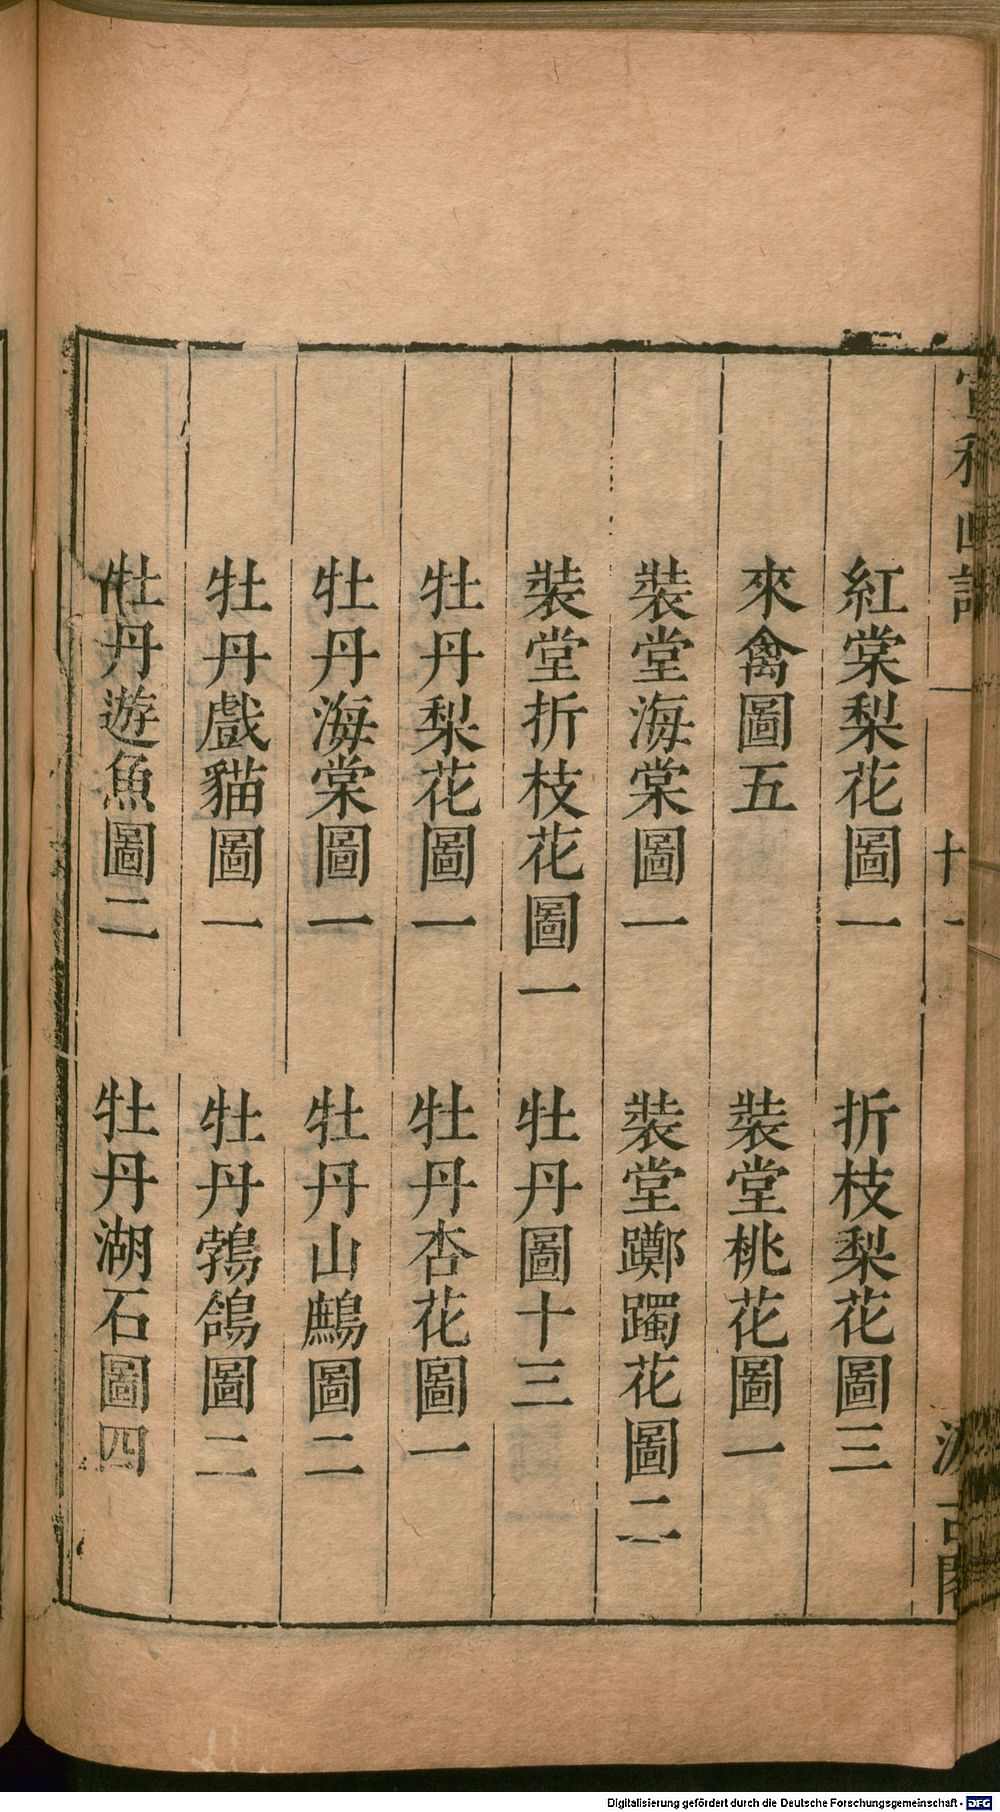 紅棠梨花圖一　折枝梨花圖三
來禽圖五　裝堂桃花圖一
裝堂海棠圖一　裝堂躑躅花圖二
裝堂折枝花圖一　牡丹圖十三
牡丹梨花圖一　牡丹杏花圖一
牡丹海棠圖一　牡丹山鷓圖二
牡丹戲貓圖一　牡丹鵓鴿圖二
牡丹遊魚圖二　牡丹湖石圖四
Digitalisierung gefördert durch die Deutsche Forschungsgemeinschaft - DFG